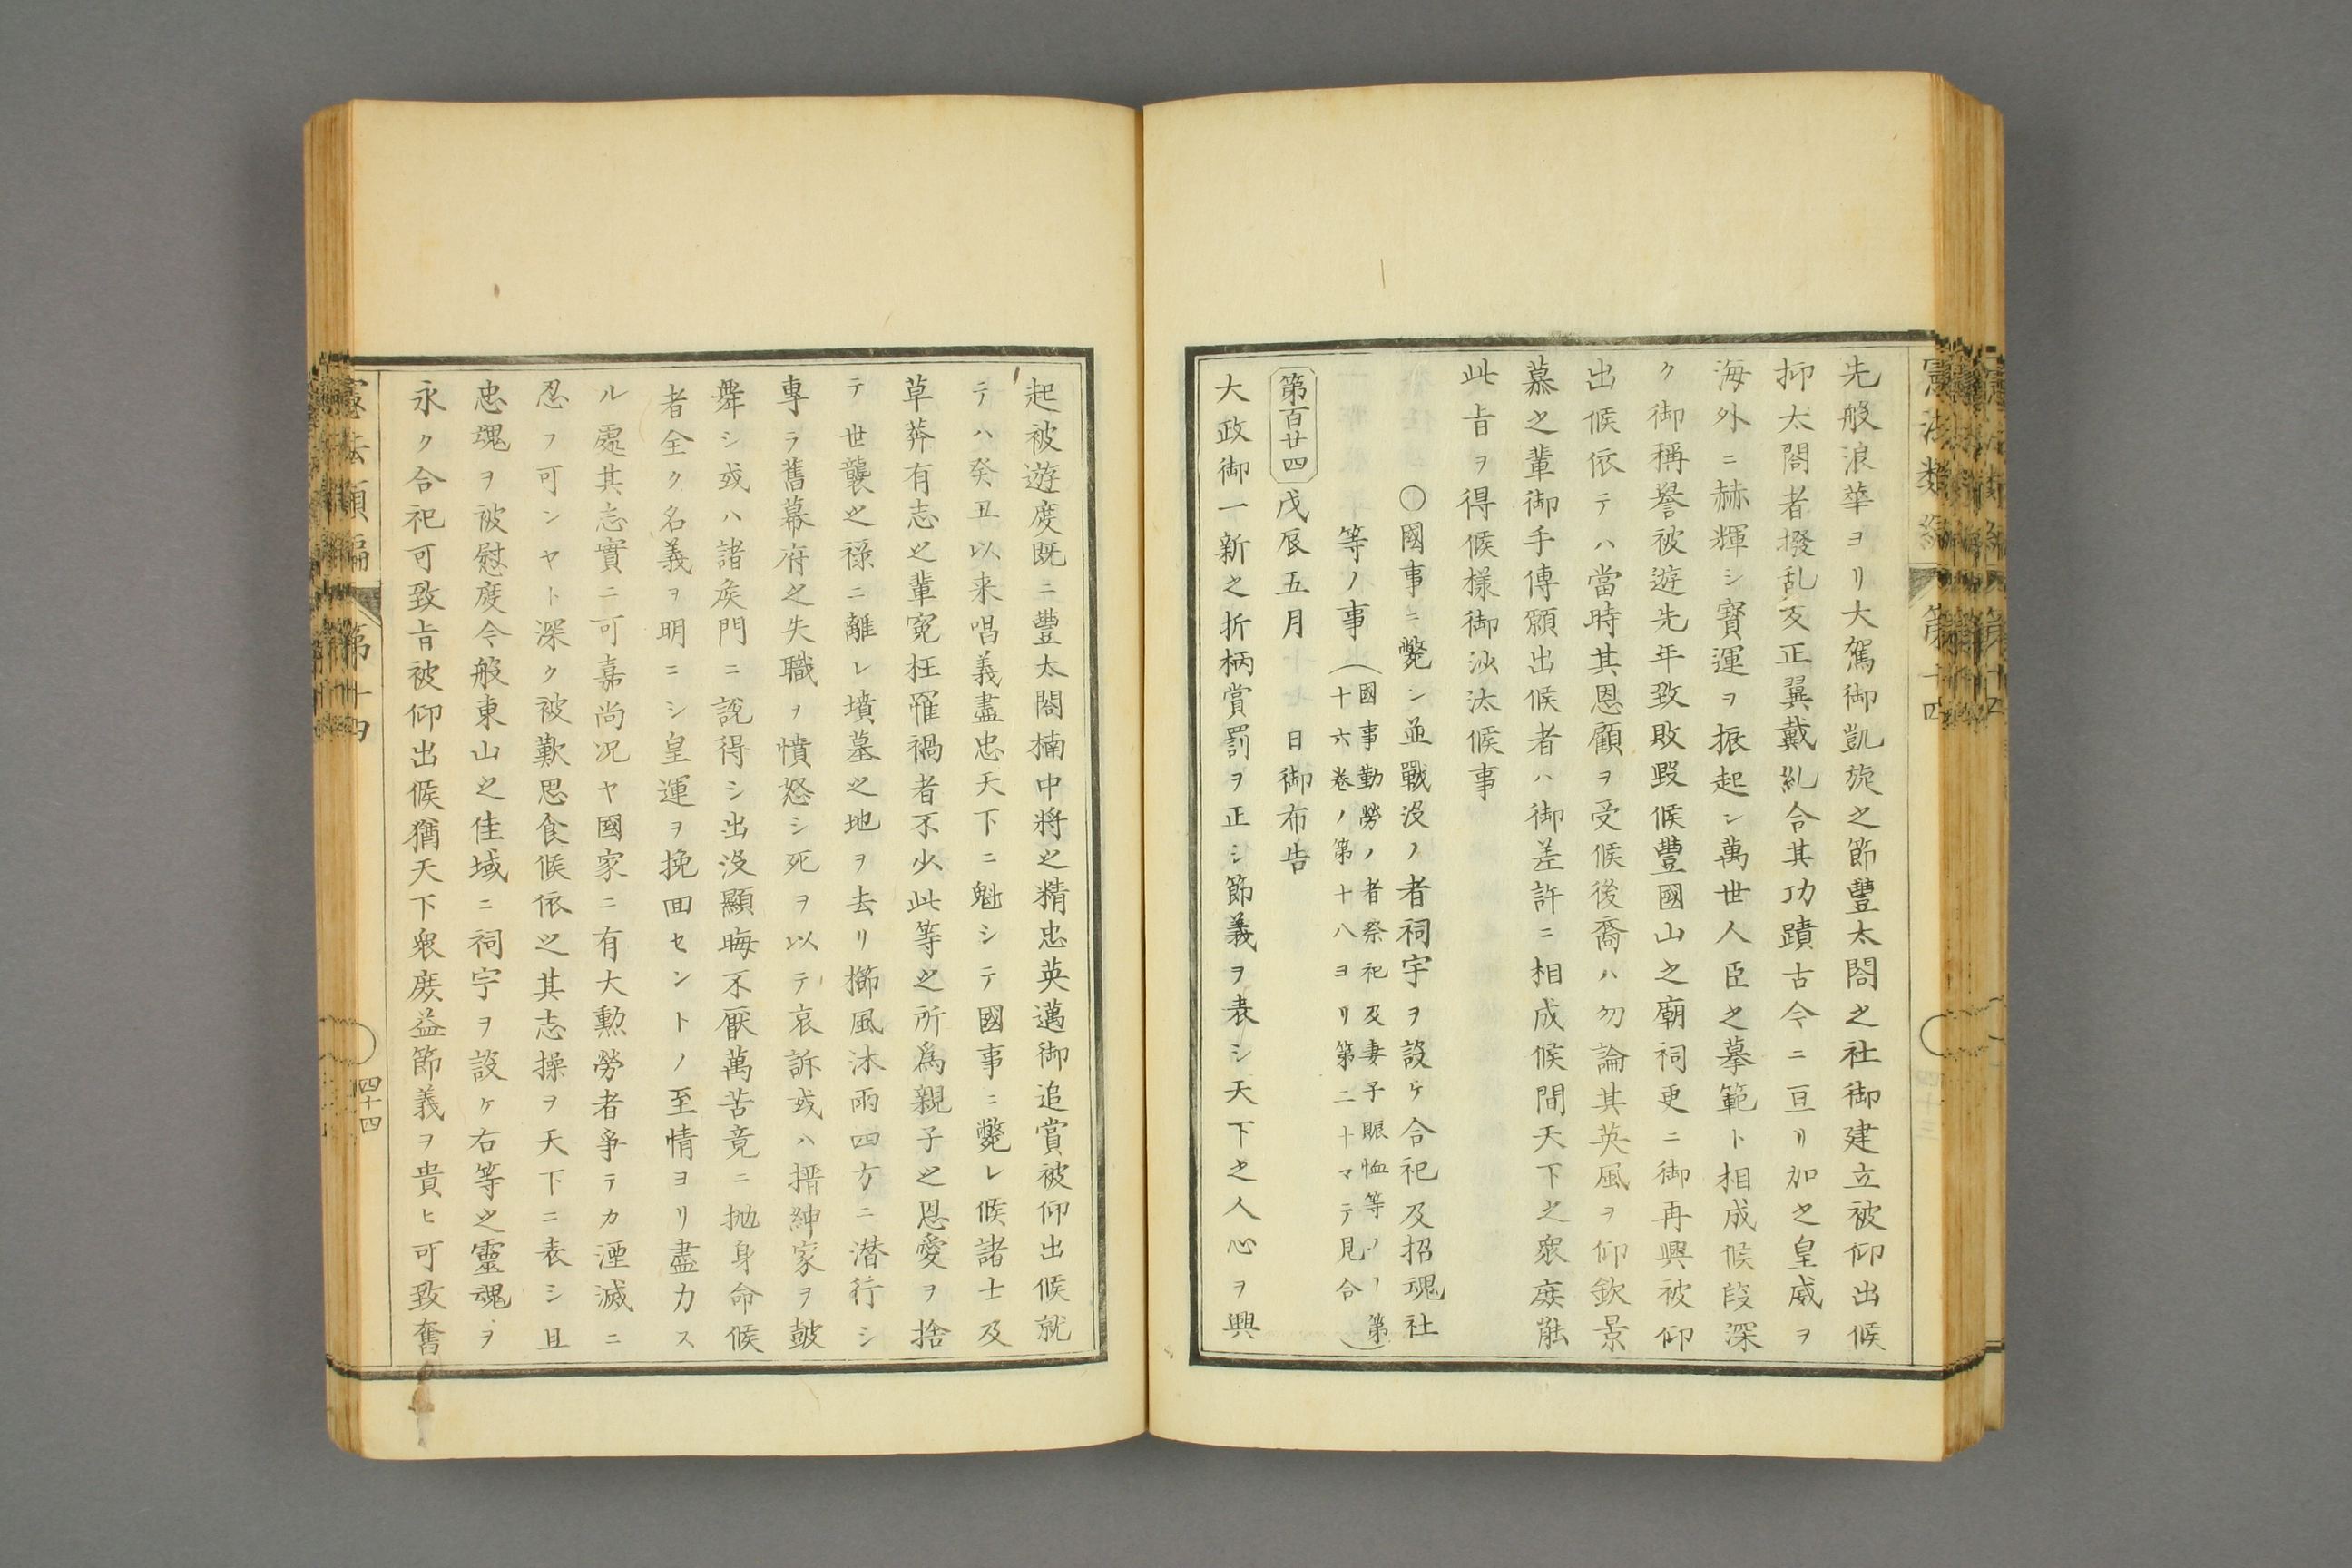 先般浪華ヨリ大駕御凱旋之節豐太閤之社御建立被仰出候
抑太閤者撥乱反正翼戴糺合其功蹟古今ニ亘リ加之皇威ヲ
海外ニ赫輝シ寳運ヲ振起シ萬世人臣之摹範ト相成候段深
ク御稱譽被遊先年致敗毀候豐國山之廟祠更ニ御再興被仰
出候依テハ當時其恩顧ヲ受候後裔ハ勿論其英風ヲ仰欽景
慕之輩御手傳願出候者ハ御差許ニ相成候間天下之衆庶能
此旨ヲ得候様御沙汰候事
○國事ニ斃シ並戰没ノ者祠宇ヲ設ケ合祀及招魂社
等ノ事
(國事勤勞ノ者祭祀及妻子賑恤等ノ丨第
十六巻ノ第十八ヨリ第二十マテ見合)
第百廿四
戊辰五月十七日御布告
大政御一新之折柄賞罰ヲ正シ節義ヲ表シ天下之人心ヲ興
起被遊度既ニ豐太閤楠中將之精忠英邁御追賞被仰出候就
テハ癸丑以来唱義盡忠天下ニ魁シテ國事ニ斃レ候諸士及
草莽有志之輩寃枉罹禍者不少此等之所爲親子之恩愛ヲ捨
テ世襲之祿ニ離レ墳墓之地ヲ去リ櫛風沐雨四方ニ潜行シ
專ラ舊幕府之失職ヲ憤怒シ死ヲ以テ哀訴或ハ搢紳家ヲ鼓
舞シ或ハ諸矦門ニ說得シ出没顯晦不厭萬苦竟ニ抛身命候
者全ク名義ヲ明ニシ皇運ヲ挽回セントノ至情ヨリ盡力ス
ル處其志實ニ可嘉尚况ヤ國家ニ有大勳勞者爭テカ湮滅ニ
忍フ可ンヤト深ク被歎思食候依之其志操ヲ天下ニ表シ且
忠魂ヲ被慰度今般東山之佳域ニ祠宇ヲ設ケ右等之靈魂ヲ
永ク合祀可致旨被仰出候猶天下衆庶益節義ヲ貴ヒ可致奮
憲法類編
第十四
四十四